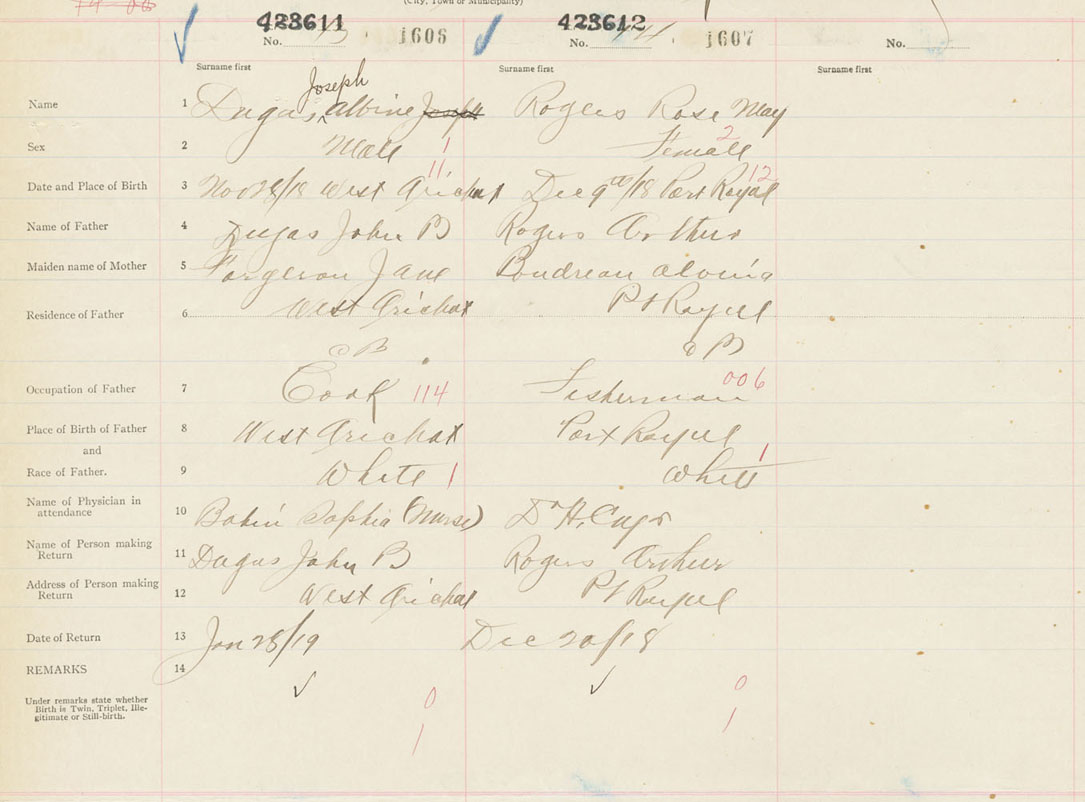 (City, Town or Municipality)
423611 423612
No. 13 1608 No. 14 1607 No.
Surname first Surname first Surname first
Joseph
Name 1 Dugas, Albine Joseph Rogers Rose May
Sex 2 Male 1 Female 2
11 12
Date and Place of Birth 3 Nov 28/18 West Arichat Dec 9th/18 Port Royal
Name of Father 4 Dugas John B Rogers Arthur
Maiden name of Mother 5 Forgeron Jane Boudreau Alvina
Residence of Father 6 West Arichat Pt Royal
CB CB
Occupation of Father 7 Cook 114 Fisherman 006
Place of Birth of Father 8 West Arichat Port Royal
and
Race of Father. 9 White 1 White 1
Name of Physician in
attendance 10 Bobin Sophia (Nurse) Dr H.
Name of Person making
Return 11 Dugas John B Rogers Arthur
Address of Person making
Return 12 West Arichat Pt Royal
Date of Return 13 Jan 28/19 Dec 20/18
REMARKS 14 ✓ ✓
Under remarks state whether
Birth is Twin, Triplet, Ille-
gitimate or Still-birth.
0 0
1 1